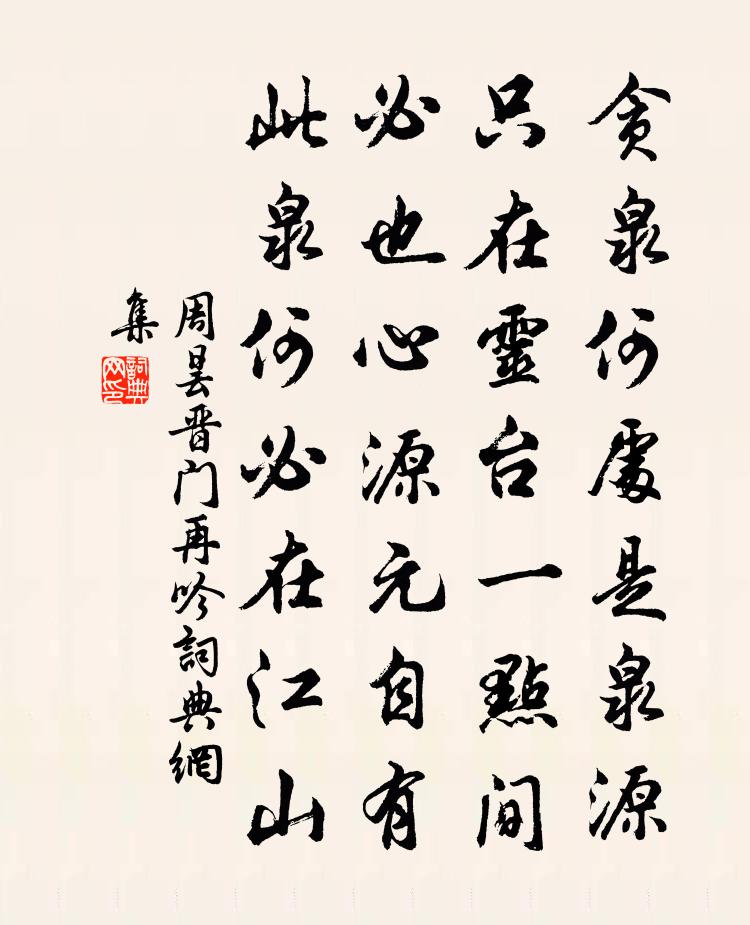 貪泉何處是泉源
只在靈台一點間
必也心源元自有
此泉何必在江山
周昙晋门再吟詞典網
集
詞典
网印